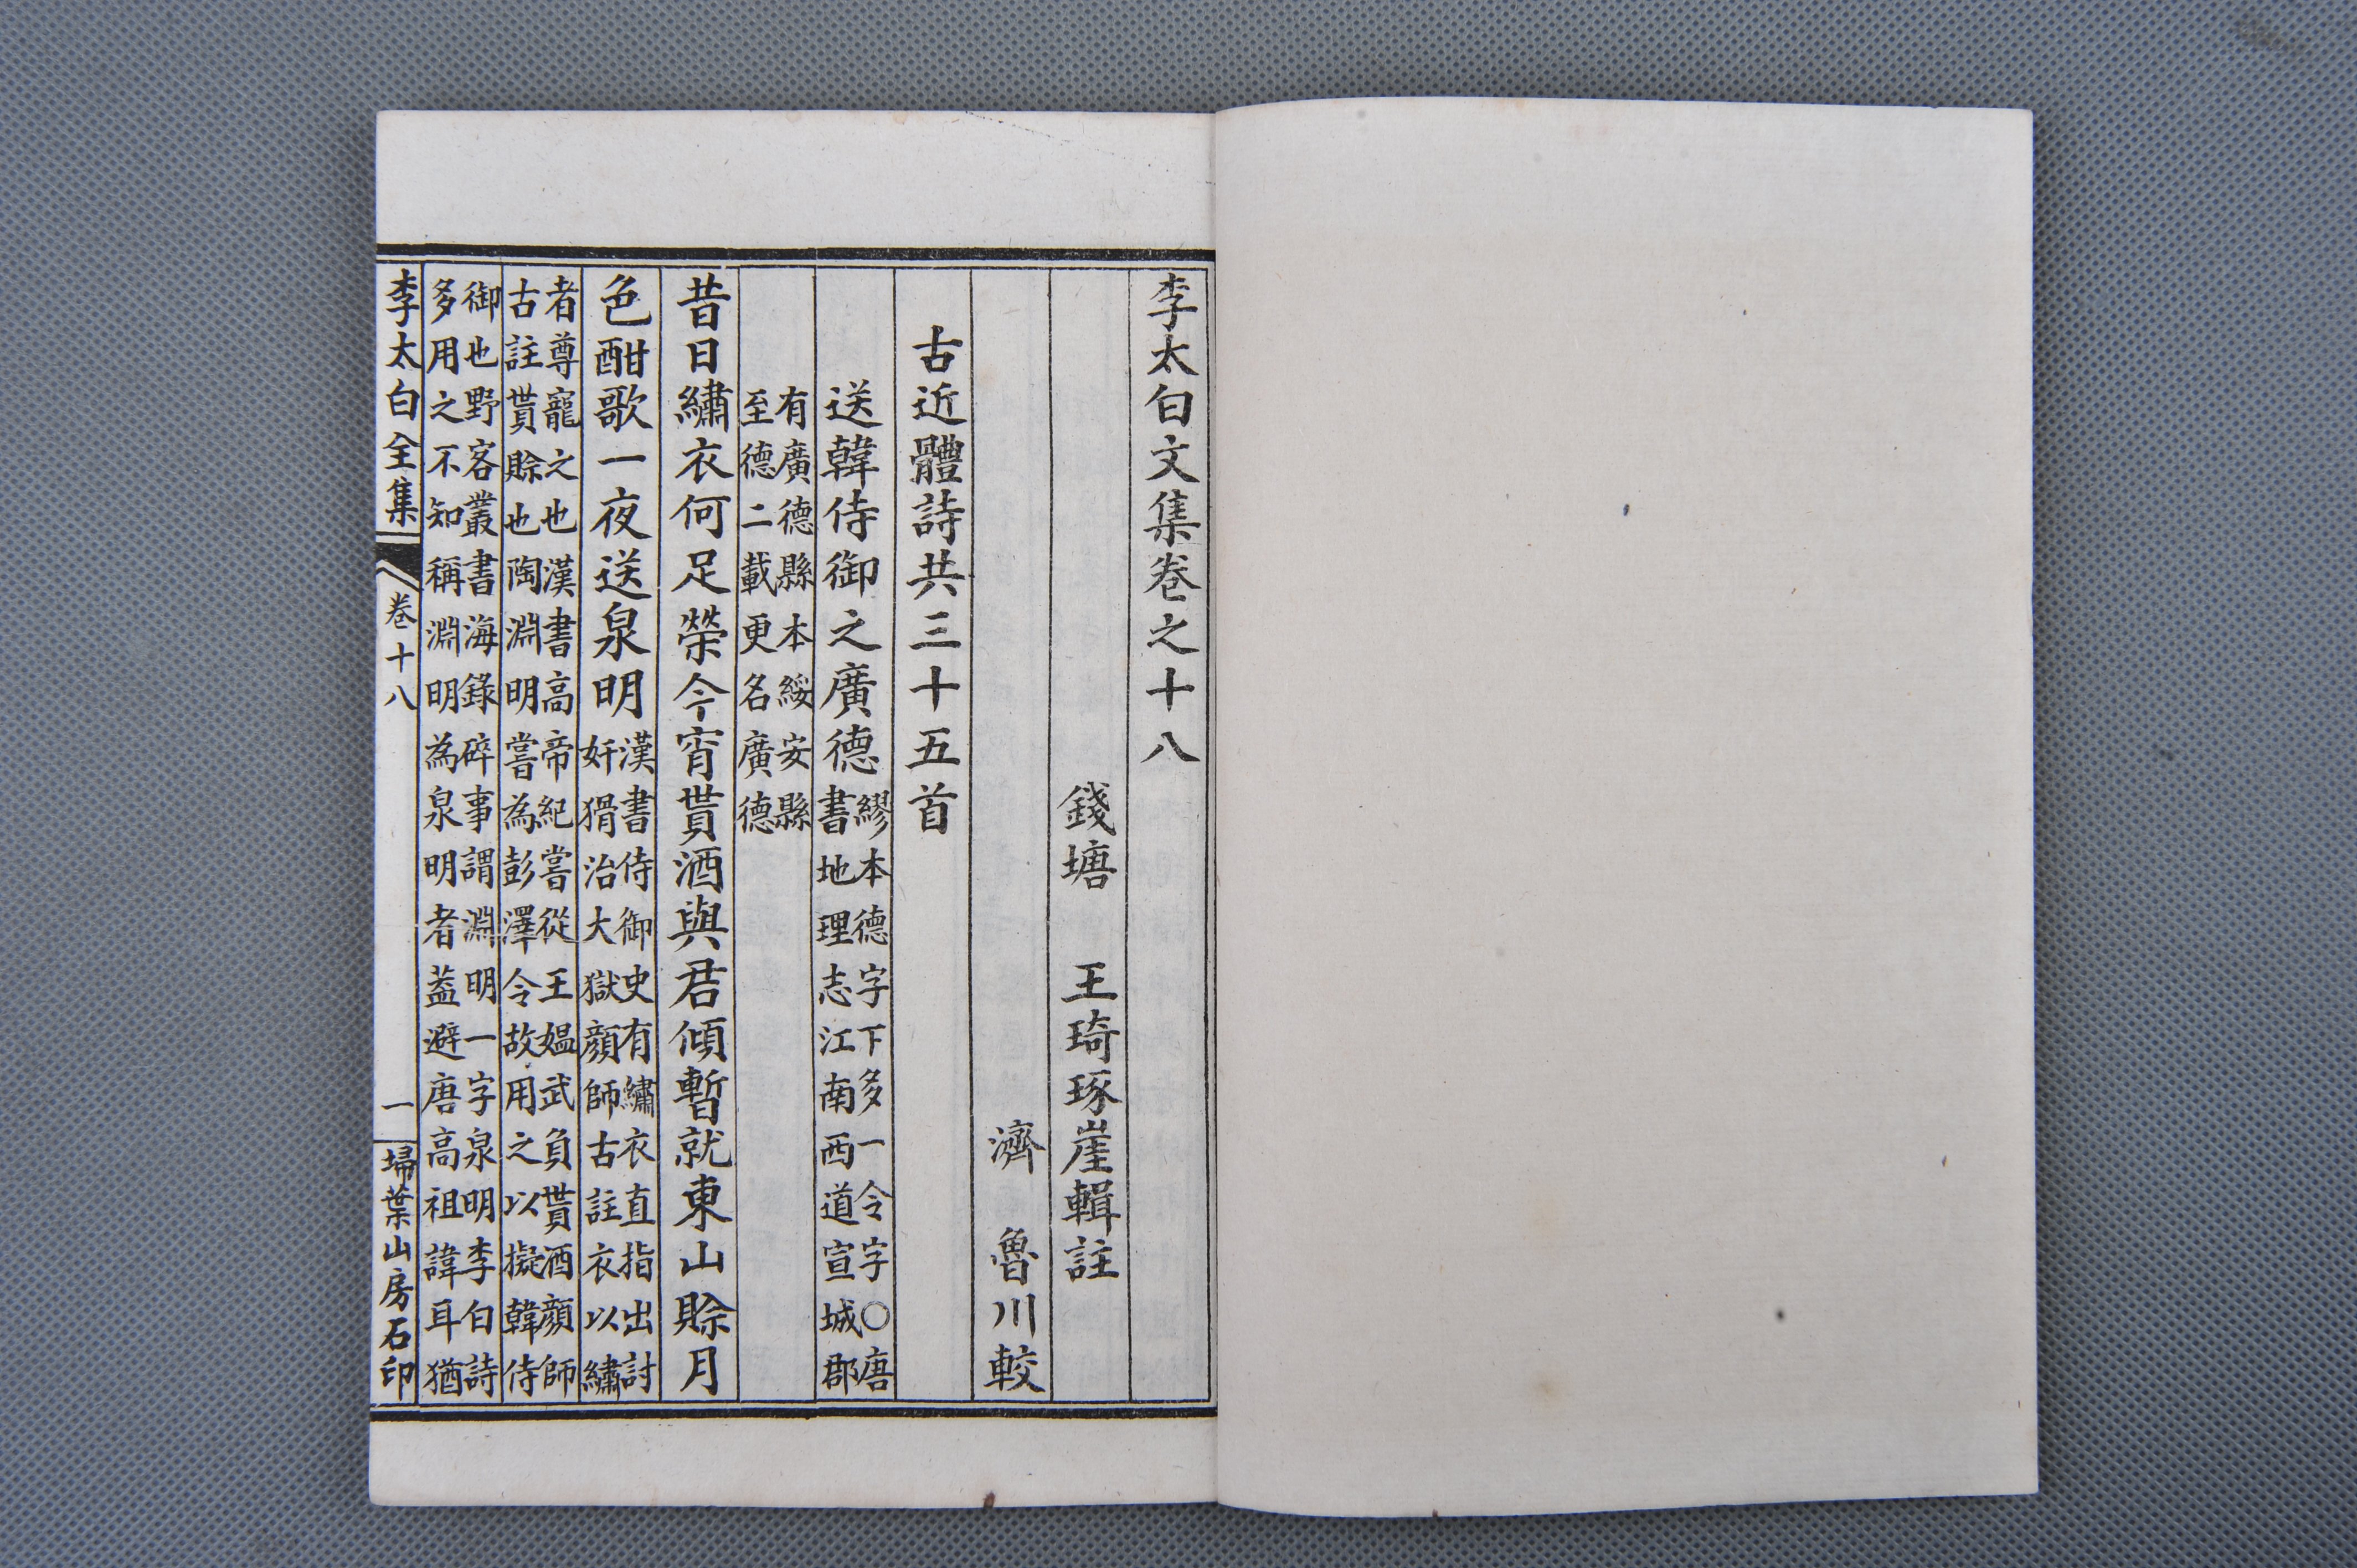 李太白文集卷之十八
錢塘 王琦琢崖輯註
濟 魯川較
古近體詩共三十五首
送韓侍御之廣德繆本德字下多一令字○唐
書地理志江南西道宣城郡
有廣德縣本綏安縣
至德二載更名廣德
昔日繡衣何足榮今宵貰酒與君傾暫就東山賒月
色酣歌一夜送泉明漢書侍御史有繡衣直指出討
奸猾治大獄顔師古註衣以繡
者尊寵之也漢書高帝紀嘗從王媪武負貰酒顔師
古註貰賒也陶淵明嘗為彭澤令故用之以擬韓侍
御也野客叢書海錄碎事謂淵明一字泉明李白詩
多用之不知稱淵明為泉明者葢避唐高祖諱耳猶
李太白全集 卷十八 一 埽葉山房石印